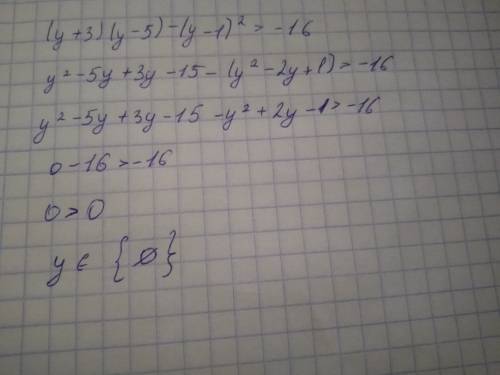 (y+3)(y-5)-(y-1)²>-16
y²-5y+3y-15-(y²-2y+1)>-16
y²-5y+3y-15-y²+2y-1>-16
0-16>-16
0>0
y∈{∅}